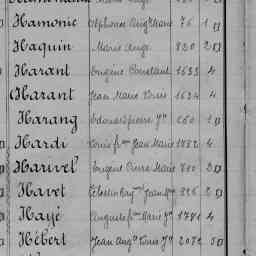 Hamonic Alphonse Aug. Marie 76 1
Haquin Marie Ange 820 2
Harant Eugène Constant 1633 4
Harant Jean Marie Louis 1634 4
Harang Edouard Pierre 660 1
Hardi Louis Jean Marie 1882 4
Harivel Eugène Pierre Marie 2
Havet Célestin 2
Hayé Auguste Marie 1741 4
Hébert Jean Aug. Louis 2072 5